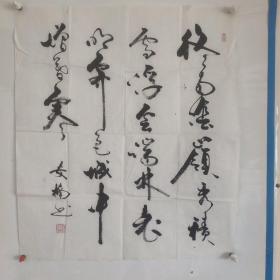 终南阴岭秀积
雪浮云端林表
明霁色城中
增暮寒